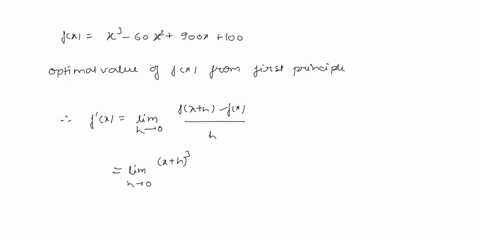 f(x) = x³ - 60x² + 900x + 100
optimal value of f(x) from first principle
∴ f'(x) = lim h→0 f(x+h) - f(x) / h
= lim h→0 (x+h)³